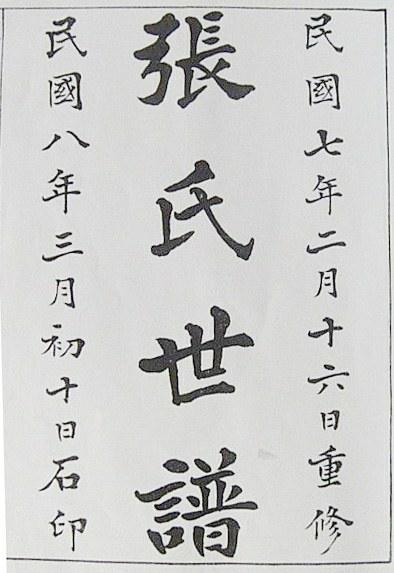 民國七年二月十六日重修
張氏世譜
民國八年三月初十日石印